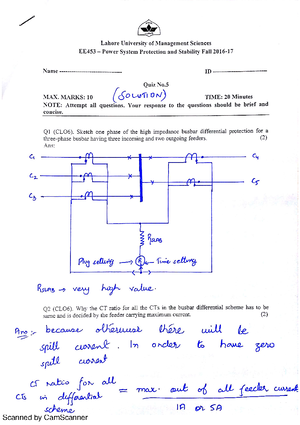 Lahore University of Management Sciences
EE453 – Power System Protection and Stability Fall 2016-17
Name
ID
Quiz No.5
(SOLUTION)
MAX. MARKS: 10 TIME: 20 Minutes
NOTE: Attempt all questions. Your response to the questions should be brief and
concise.
Q1 (CLO6). Sketch one phase of the high impedance busbar differential protection for a
three-phase busbar having three incoming and two outgoing feeders. (2)
Ans:
C1
C4
C2
C5
C3
RSTAB
Plug setting
Time setting
RSTAB → very high value.
Q2 (CLO6). Why the CT ratio for all the CTs in the busbar differential scheme has to be
same and is decided by the feeder carrying maximum current. (2)
Ans:- because otherwise there will be
spill current. In order to have zero
spill current
CT ratio for all
CTs in differential = max. out of all feeder current
scheme 1A or 5A
Scanned by CamScanner